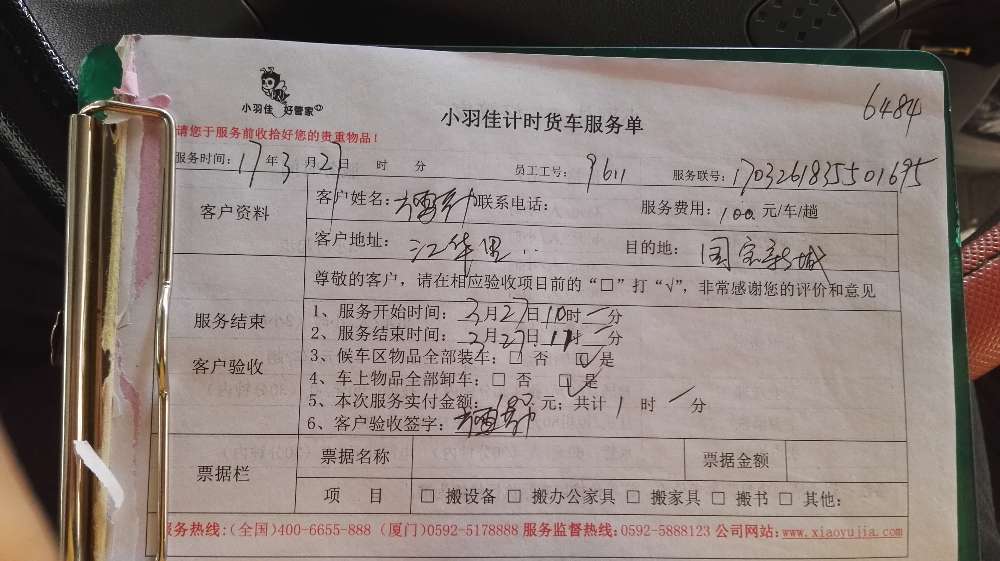 小羽佳 好管家
小羽佳计时货车服务单
6484
请您于服务前收拾好您的贵重物品！
服务时间：17年3月27日 时 分 员工工号：9611 服务联号：17032618355501695
客户资料
客户姓名： 联系电话： 服务费用：100元/车/趟
客户地址：江华里 目的地：国宝新城
服务结束
客户验收
尊敬的客户，请在相应验收项目前的“□”打“√”，非常感谢您的评价和意见
1、服务开始时间：3月27日10时一分
2、服务结束时间：3月27日11时一分
3、候车区物品全部装车：□ 否 □√是
4、车上物品全部卸车：□ 否 □√是
5、本次服务实付金额：180元；共计1时一分
6、客户验收签字：
票据栏
票据名称 票据金额
项 目 □ 搬设备 □ 搬办公家具 □ 搬家具 □ 搬书 □ 其他:
服务热线:(全国)400-6655-888 (厦门)0592-5178888 服务监督热线:0592-5888123 公司网站:www.xiaoyujia.com